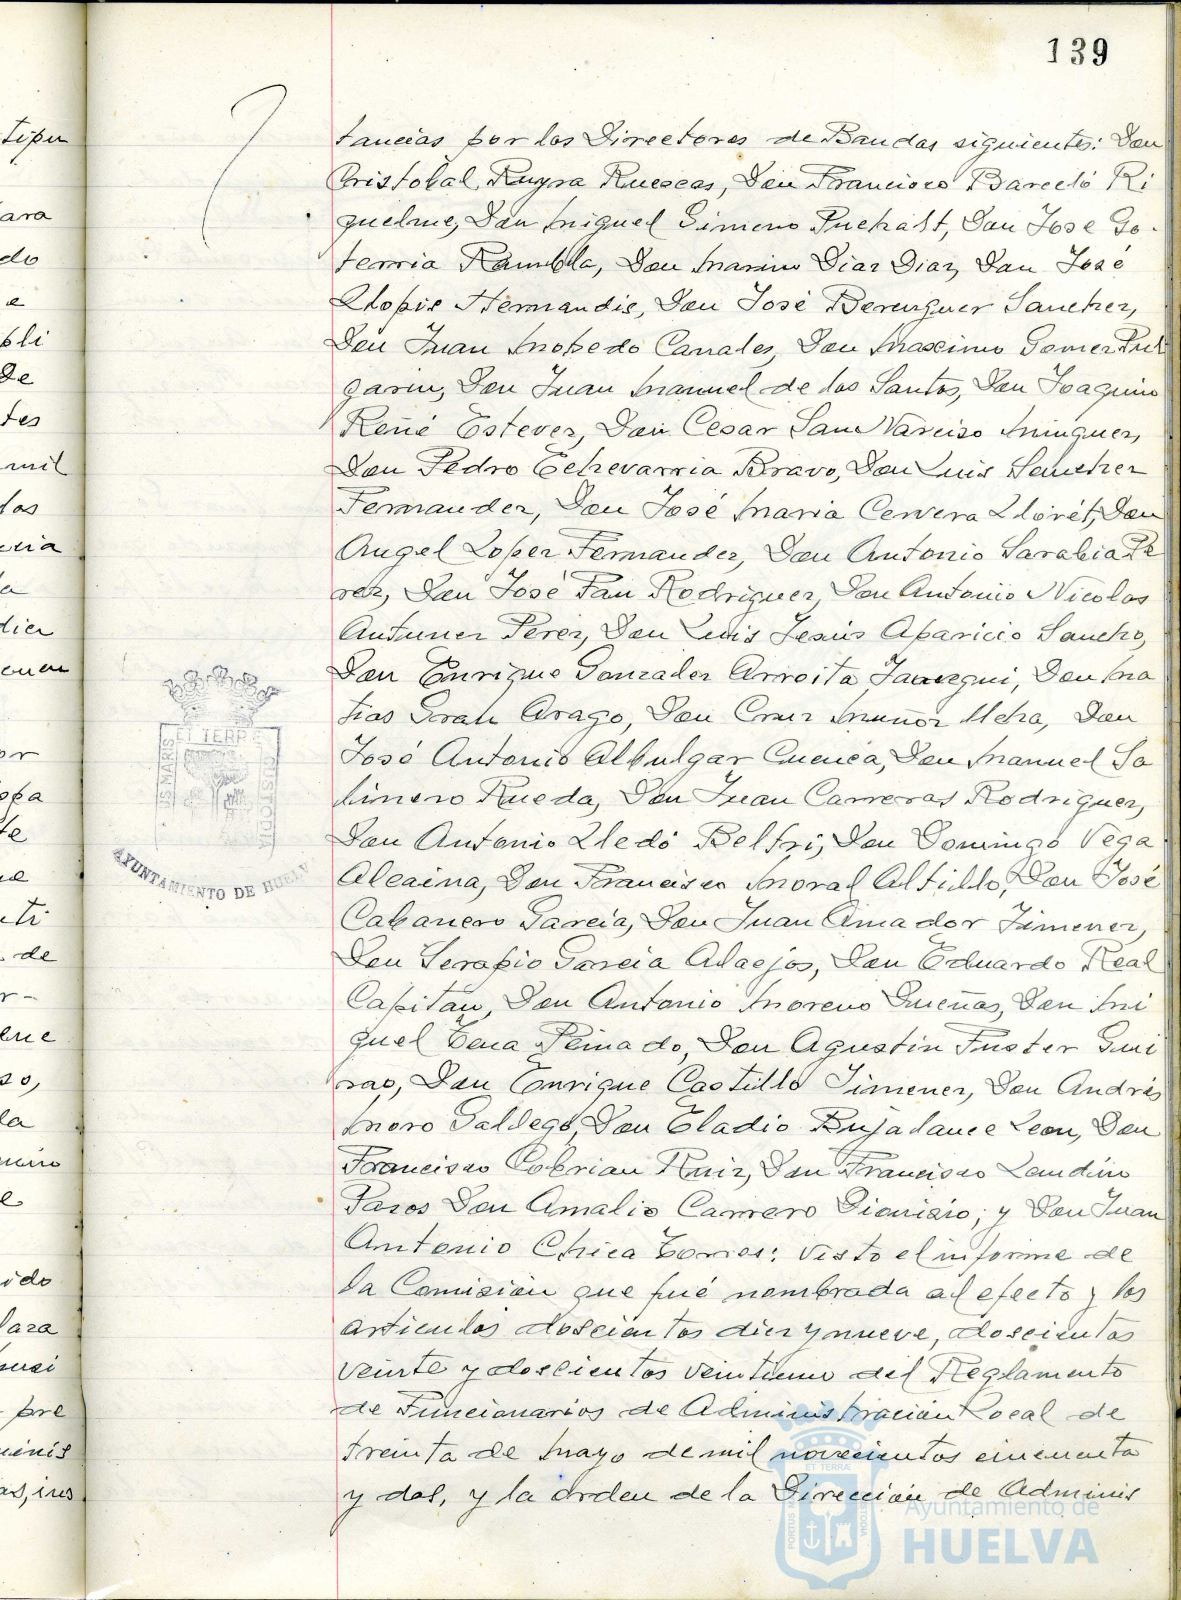 139
tancias por los Directores de Bandas siguientes: Don
Cristobal Ruyra Ruescas, Don Francisco Barceló Ri
quelme, Don Miguel Gimeno Puchalt, Don Jose Go-
terria Rambla, Don Marino Diaz Diaz, Don José
Llopis Hernandis, Don José Berenguer Sanchez,
Don Juan Mohedo Canales, Don Maximo Gomez Pul
garin, Don Juan Manuel de los Santos, Don Joaquin
Reñé Estevez, Don Cesar San Narciso Minguez,
Don Pedro Echevarria Bravo, Don Luis Sanchez
Fernandez, Don José Maria Cervera Lloret, Don
Angel Lopez Fernandez, Don Antonio Sarabia Pe
rez, Don José Pau Rodriguez, Don Antonio Nicolas
Antunez Perez, Don Luis Jesús Aparicio Sancho,
Don Enrique Gonzalez Arroita Jauregui, Don Ma
tias Arago, Don Cruz Muñoz Don
José Antonio Albulgar Cuenca, Don Manuel Sa
linero Rueda, Don Juan Carreras Rodriguez,
Don Antonio Lledó Beltri, Don Domingo Vega
Alcaina, Don Francisco Moral Altillo, Don José
Cabanero Garcia, Don Juan Amador Jimenez,
Don Serapio Garcia Adaejos, Don Eduardo Real
Capitan, Don Antonio Moreno Dueñas, Don Mi
guel Tena Peinado, Don Agustin Fuster Gui
rao, Don Enrique Castillo Jimenez, Don Andrés
Moro Gallego, Don Eladio Bujalance Leon, Don
Francisco Cobrian Ruiz, Don Francisco Landin
Pazos Don Amalio Carrero Dionisio; y Don Juan
Antonio Chica Torres: Visto el informe de
la Comision que fué nombrada al efecto y los
articulos doscientos diez y nueve, doscientos
veinte y doscientos veintiuno del Reglamento
de Funcionarios de Administracion Local de
treinta de Mayo de mil novecientos cincuenta
y dos, y la orden de la Direccion de Adminis
ET TERR
AYUNTAMIENTO DE HUELV
Ayuntamiento de
HUELVA